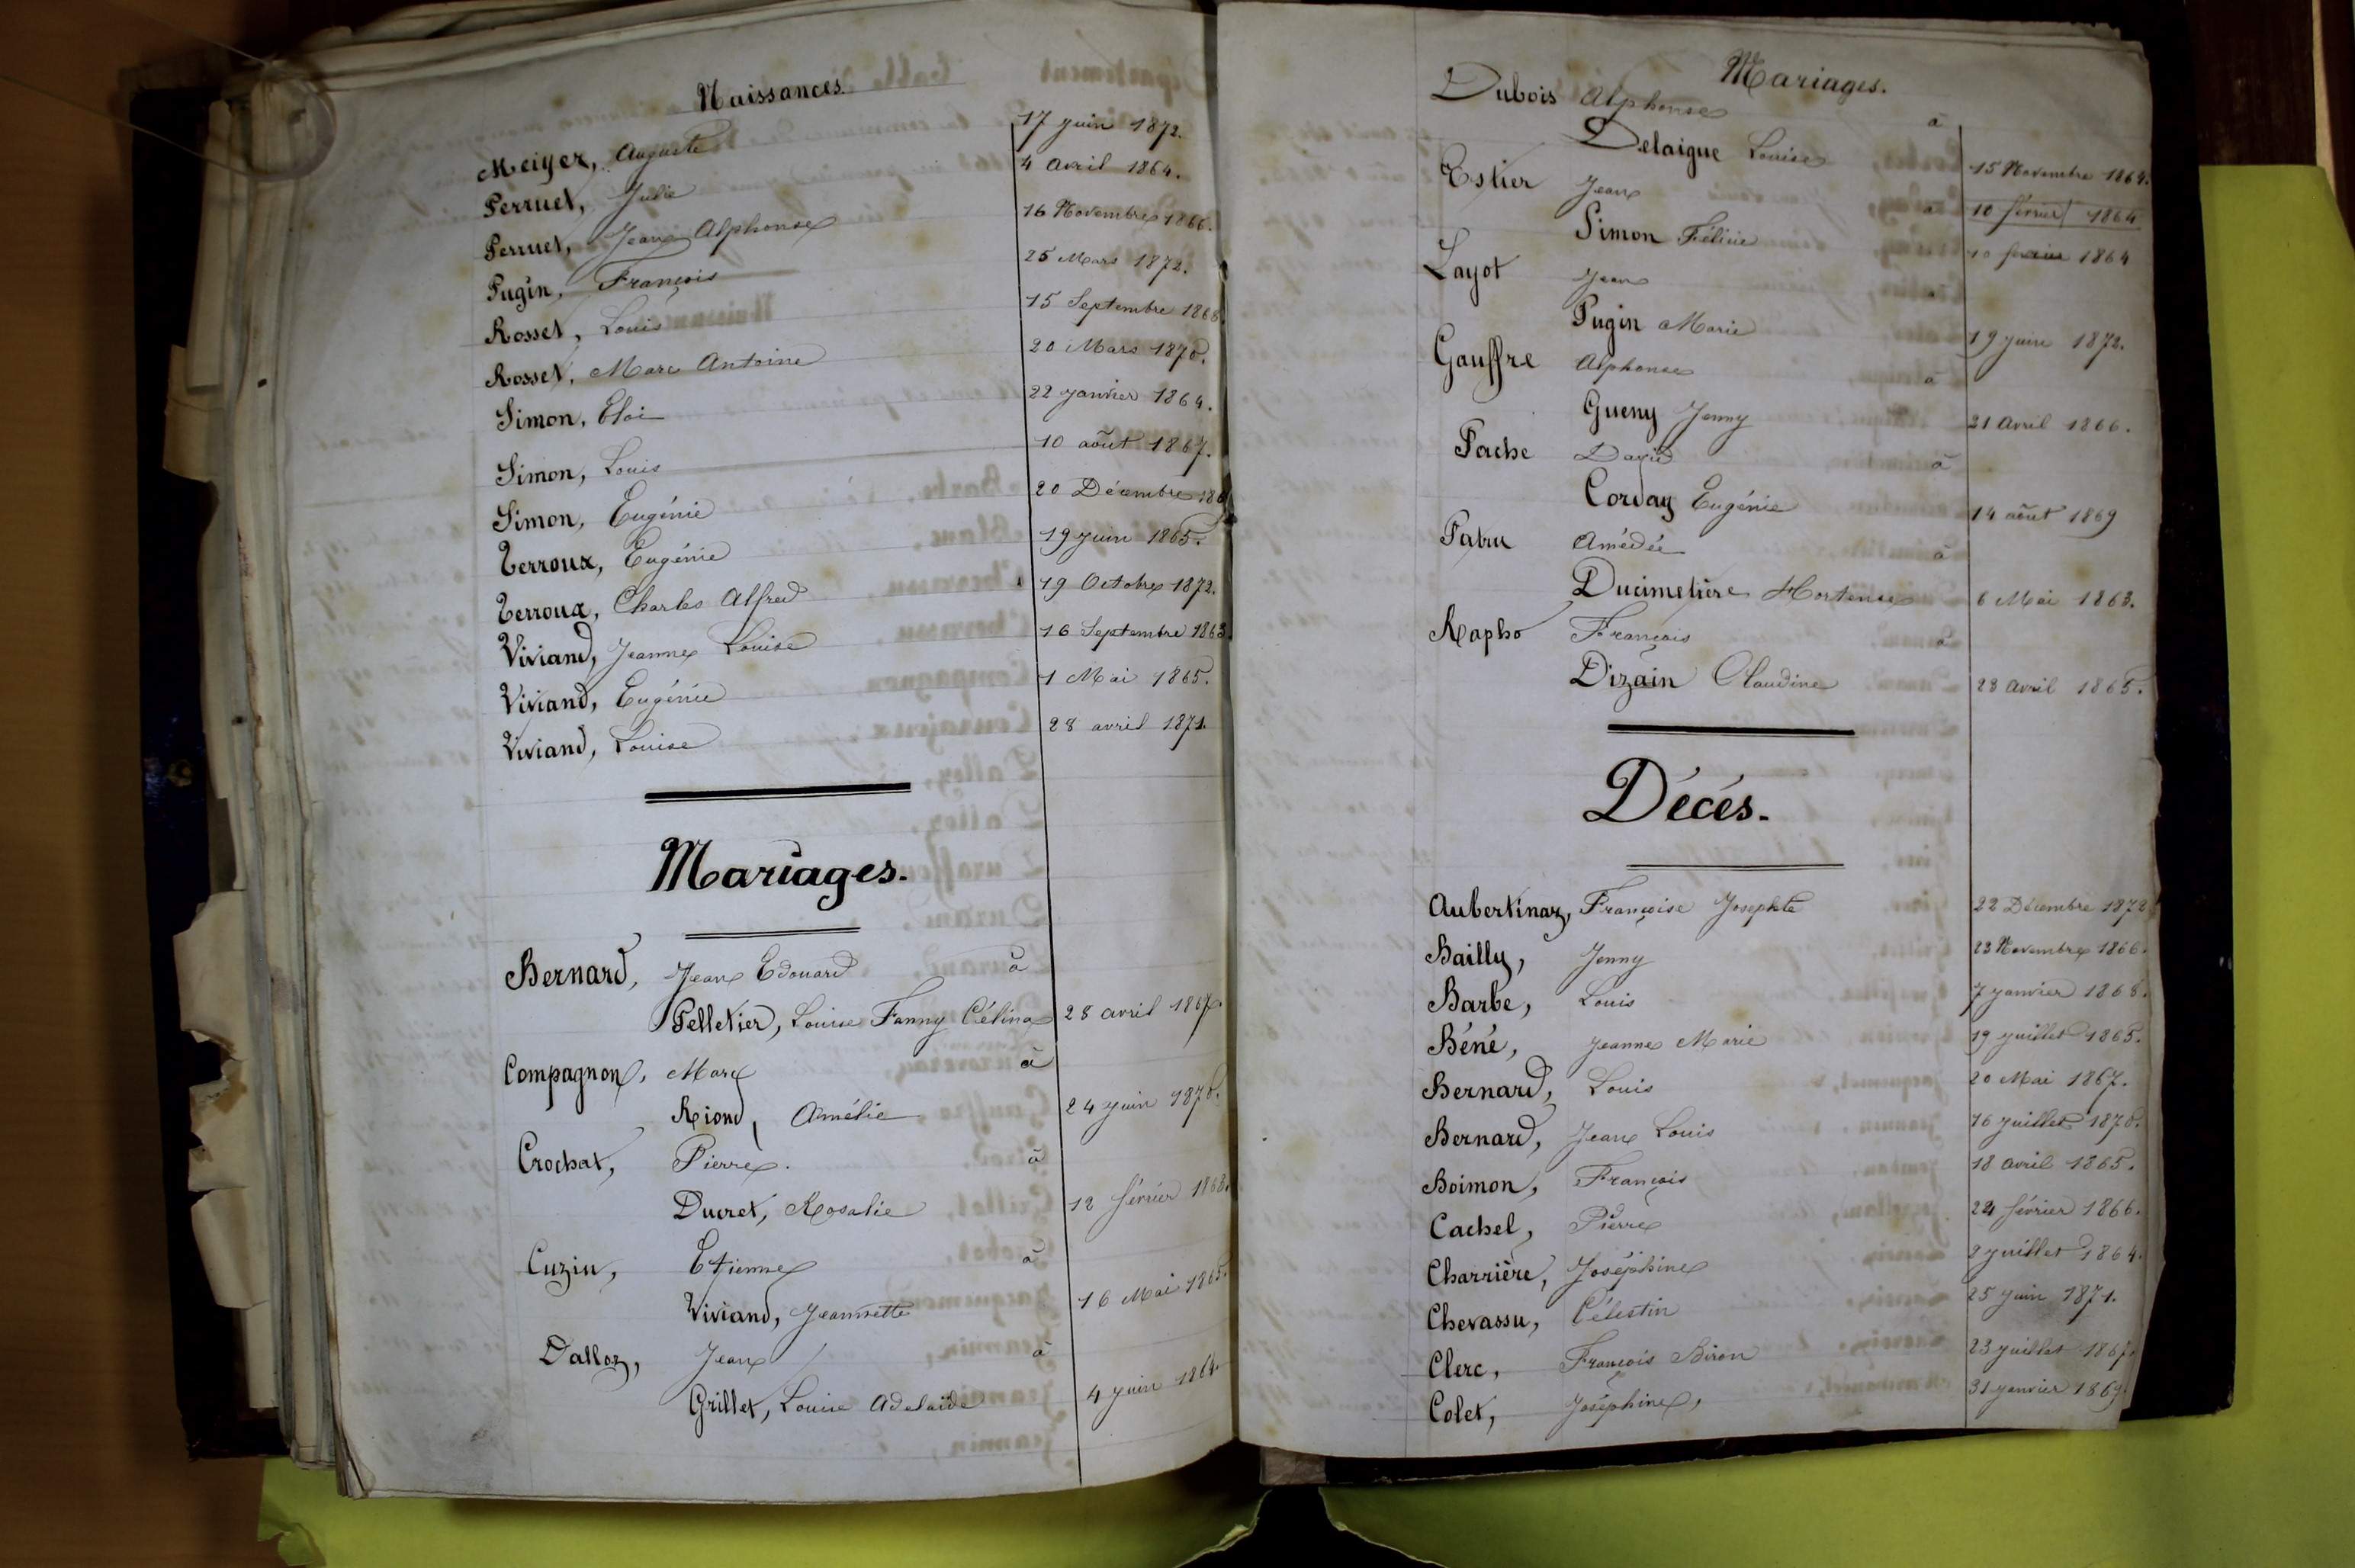 Naissances.
Meiyer, Auguste 17 juin 1872.
Perruet, Julie 4 avril 1864.
Perruet, Jean Alphonse 16 Novembre 1866.
Pugin, François 25 Mars 1872.
Rosset, Louis 15 Septembre 1868
Rosset, Marc Antoine 20 Mars 1870.
Simon, Eloi 22 janvier 1864.
Simon, Louis 10 août 1867.
Simon, Eugénie 20 Décembre
Terroux, Eugénie 19 juin 1865.
Terroux, Charles Alfred 19 Octobre 1872.
Viviand, Jeanne Louise 16 Septembre 1863
Viviand, Eugénie 1 Mai 1865.
Viviand, Louise 28 avril 1871.
Mariages.
Bernard, Jean Edouard à
Pelletier, Louise Fanny Célina 28 avril 1867.
Compagnon, Marc à
Riond, Amélie 24 juin 1870.
Crochat, Pierre. à
Ducret, Rosalie 12 février 1868.
Cuzin, Etienne à
Viviand, Jeannette 16 Mai 1865.
Dalloz, Jean à
Grillet, Louise Adelaïde 4 juin 1864.
Mariages.
Dubois Alphonse à
Delaigue Louise 15 Novembre 1864.
Estier Jean à 10 février 1864
Simon Féline 10 février 1864
Layot Jean à
Pugin Marie 19 juin 1872.
Gauffre Alphonse à
Gueny Jenny 21 avril 1866.
Pache David à
Corday Eugénie 14 août 1869
Patru Amédée à
Ducimetière Hortense 6 Mai 1863.
Rapho François à
Dizain Claudine 28 avril 1865.
Décès.
Aubertinaz, Françoise Josephte 22 Décembre 1872
Bailly, Jenny 23 Novembre 1866.
Barbe, Louis 7 janvier 1868.
Béné, Jeanne Marie 19 juillet 1865.
Bernard, Louis 20 Mai 1867.
Bernard, Jean Louis 16 juillet 1870.
Boimon, François 18 avril 1865.
Cachel, Pierre 24 février 1866.
Charrière, Joséphine 2 juillet 1864.
Chevassu, Célestin 25 juin 1871.
Clerc, François Biron 23 juillet 1867.
Colet, Joséphine, 31 janvier 1869.